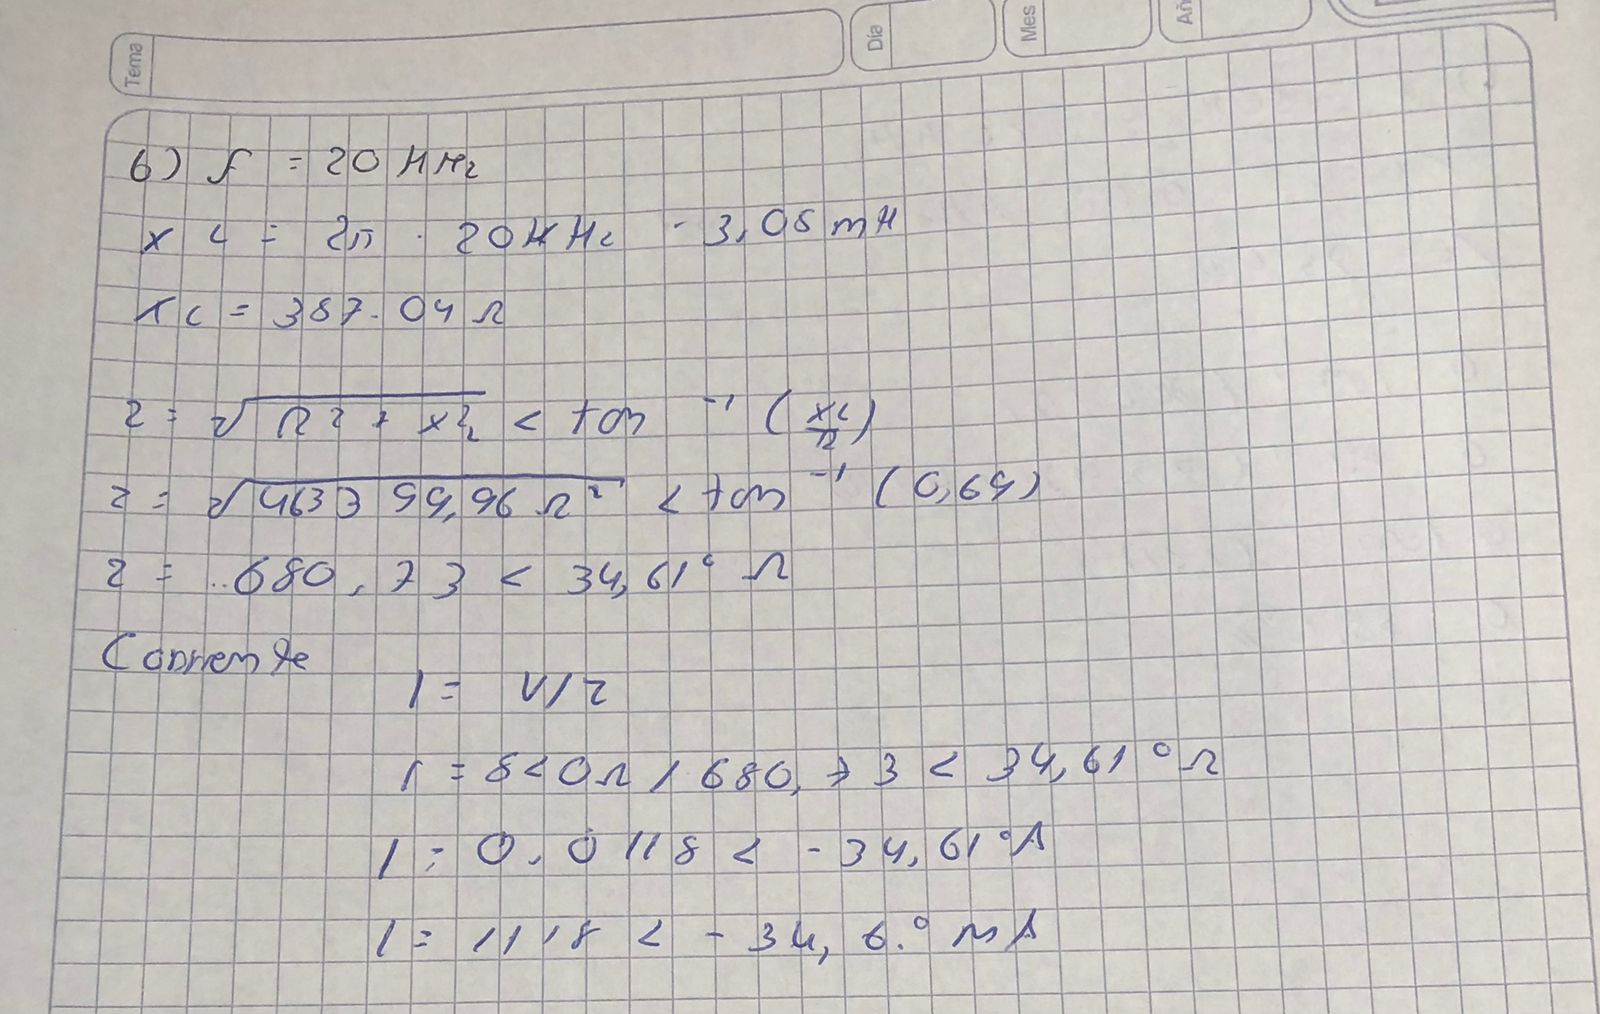 Tema Día Mes Añ
6) f = 20 KHz
XL = 2π · 20KHz · 3,08 mH
XL = 387.04 Ω
Z = √R2 + X2L < tan -1 (XL/R)
Z = √463355,96 Ω² < tan -1 (0,69)
Z = 680,73 < 34,61° Ω
Corriente
I = V/Z
I = 8<0V / 680,73 < 34,61° Ω
I = 0.0118 < -34,61° A
I = 11,8 < -34,6.° mA